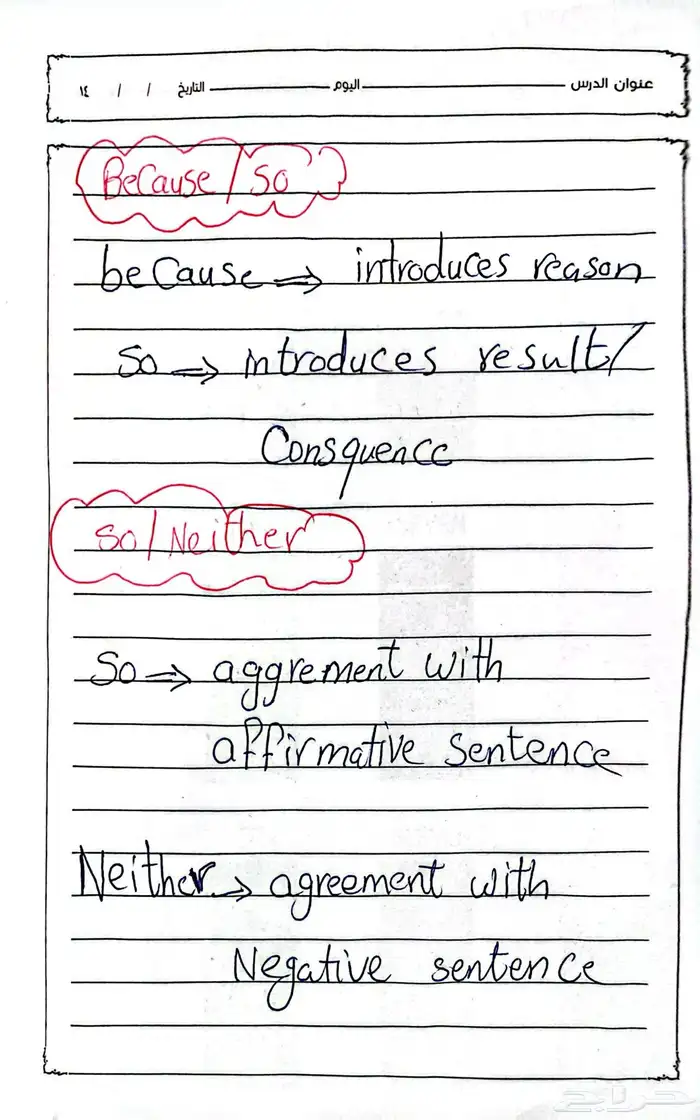 عنوان الدرس اليوم التاريخ / / ١٤
BeCause / So
beCause ⇒ introduces reason
So ⇒ introduces result/
Consquence
So / Neither
So ⇒ aggrement with
affirmative sentence
Neither → agreement with
Negative sentence
حراج